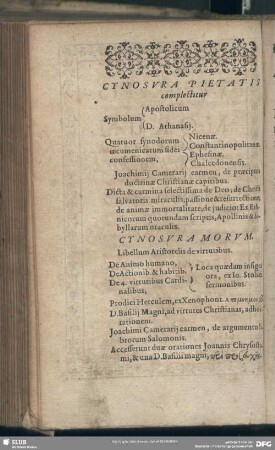 CYNOSVRA PIETATIS
complectitur
Symbolum { Apostolicum
D. Athanasij.
Quatuor synodorum
œcumenicarum fidei
confessionem,
{ Nicenæ.
Constantinopolitanæ.
Ephesinæ.
Chalcedonensis.
Joachimij Camerarij carmen, de præcipuis
doctrinæ Christianæ capitibus.
Dicta & carmina selectissima de Deo, de Christi
salvatoris miraculis, passione & resurrectione,
de animæ immortalitate, de judicio: Ex Eth-
nicorum quorundam scriptis, Apollinis & Si-
byllarum oraculis.
CYNOSVRA MORVM.
Libellum Aristotelis de virtutibus.
De Animo humano,
De Actionib. & habitib.
De 4. virtutibus Cardi-
nalibus,
} Loca quædam insigni-
ora, ex Io. Stobæi
sermonibus.
Prodici Herculem, ex Xenophont.
D. Basilij Magni, ad virtutes Christianas, adhor-
tationem.
Joachimi Camerarij carmen, de argumento li-
brorum Salomonis.
Accesserunt duæ orationes Joannis Chrysosto-
mi, & una D. Basilii magni,
SLUB
DFG